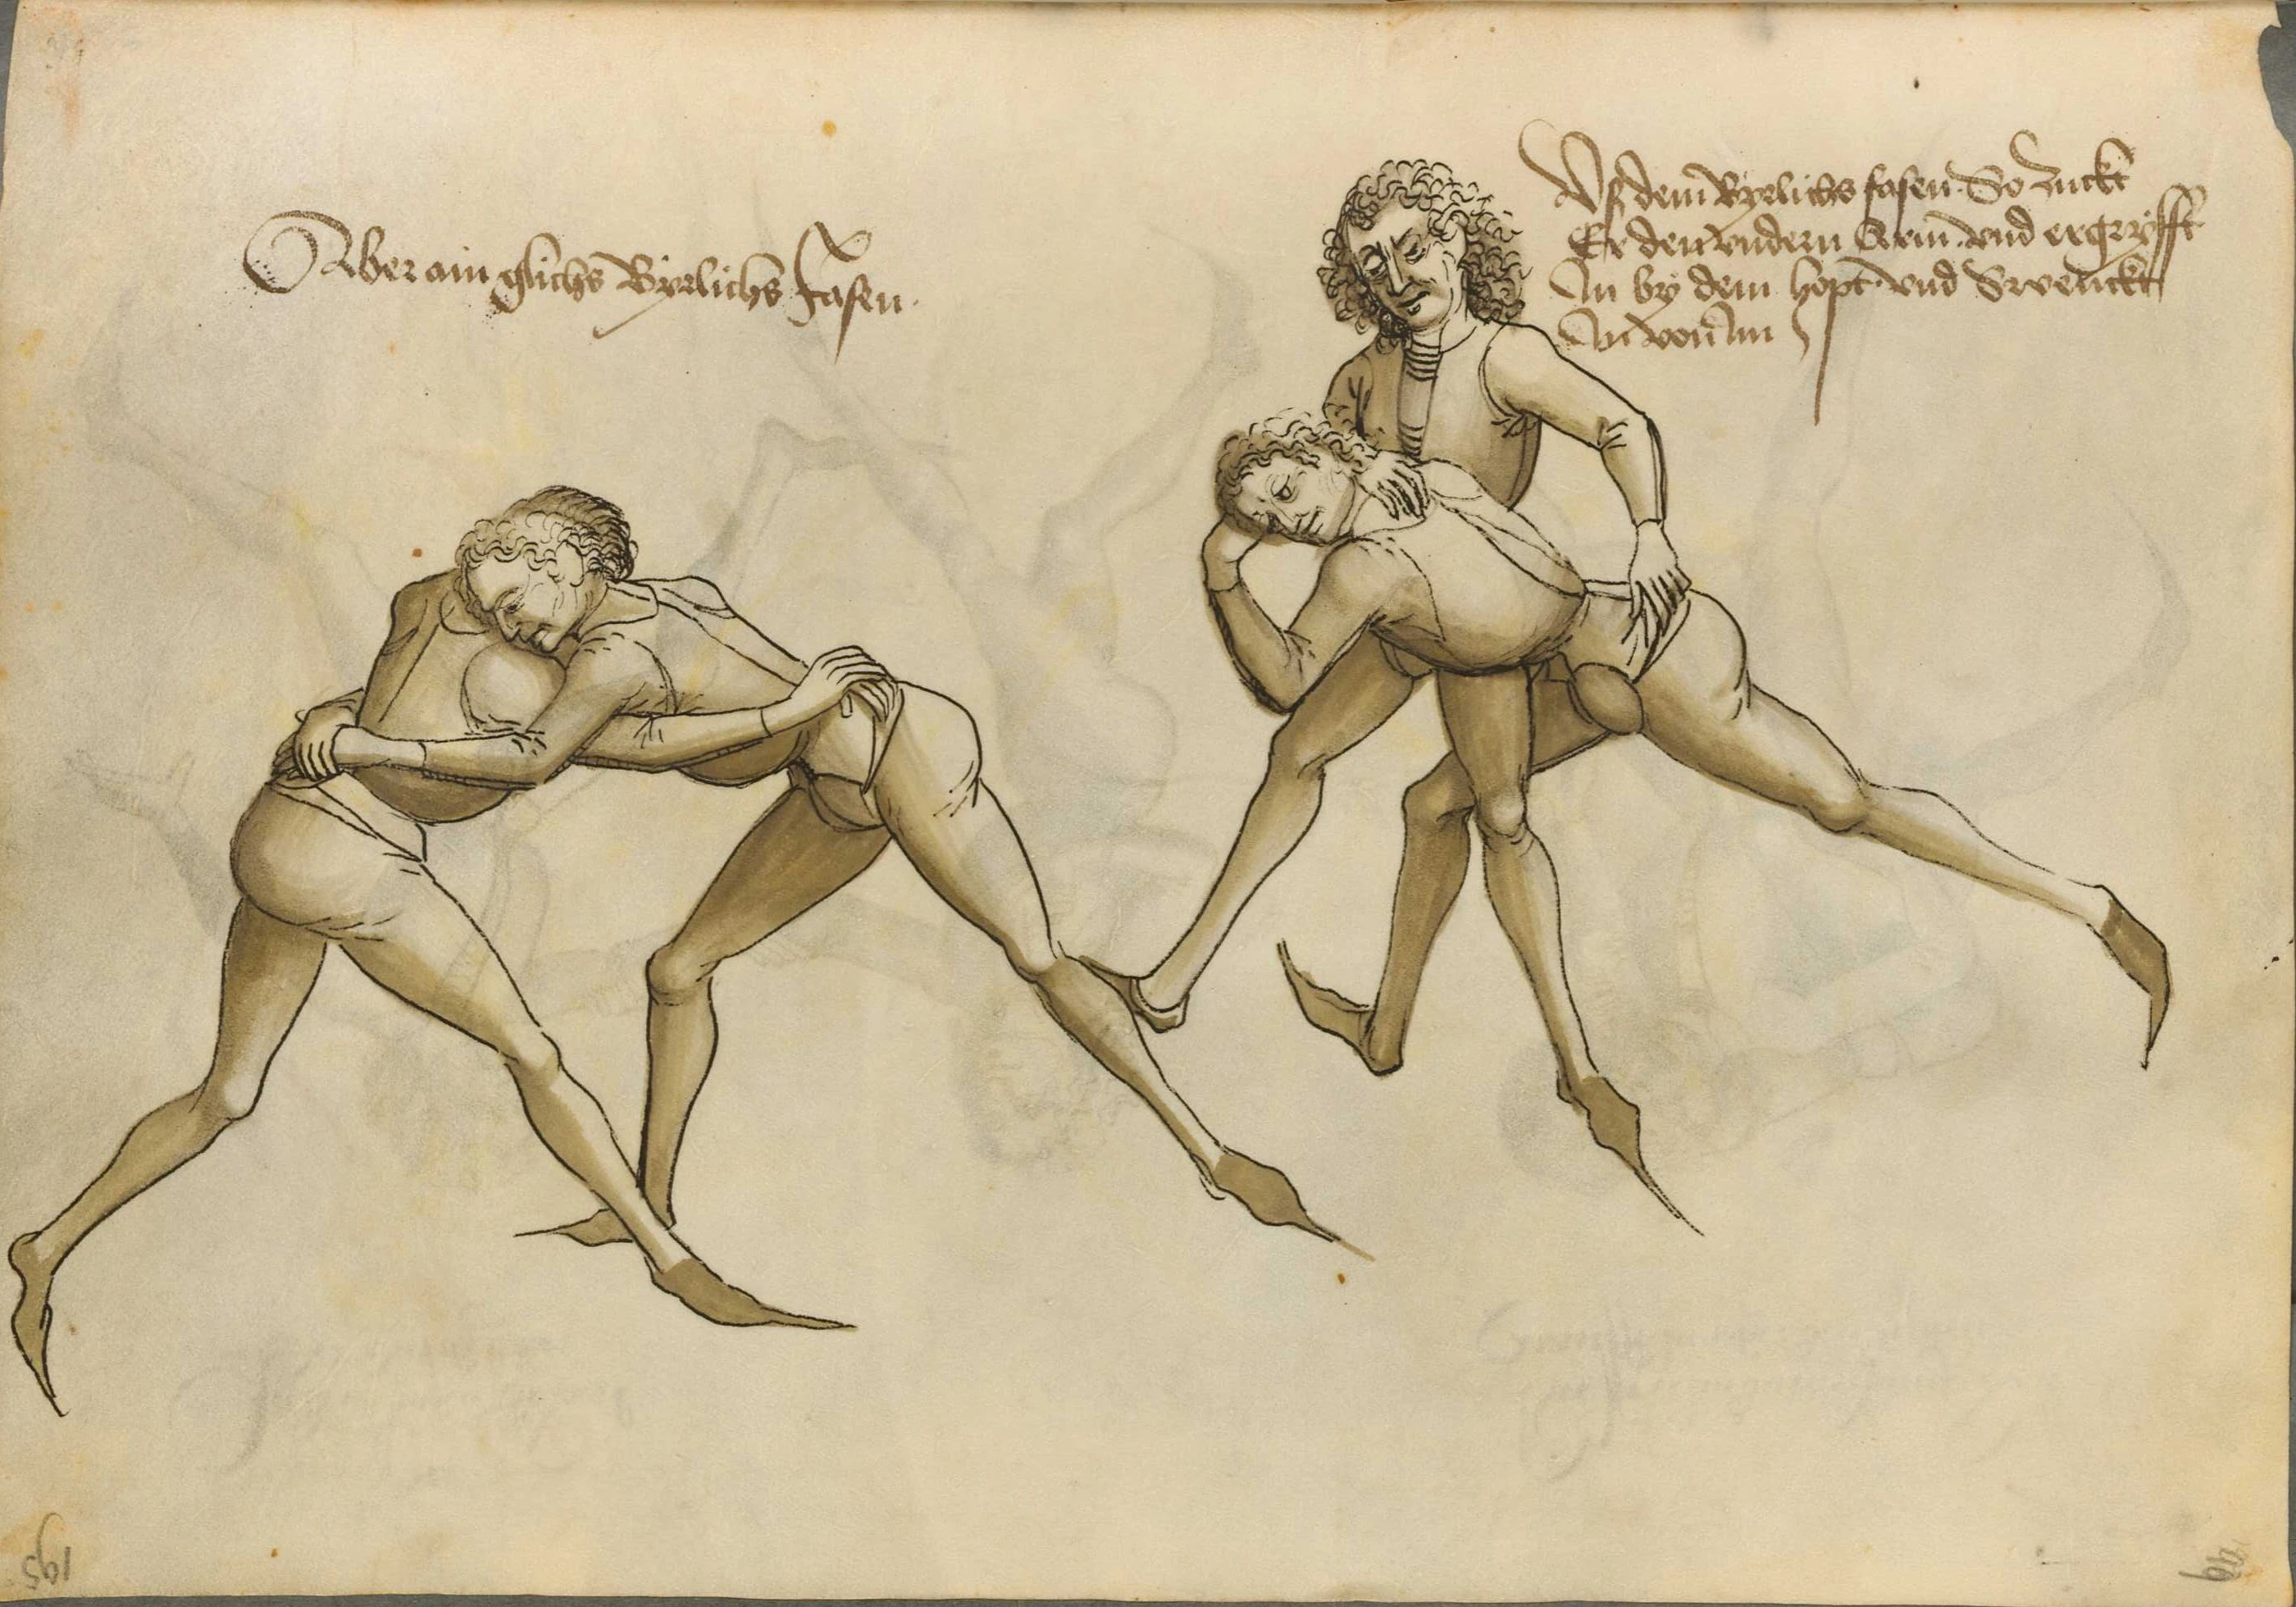 Aber ain glichs Byrlichs fasen.
Vs dem Byrlichs fasen So zuckt
Er den vndern Arm. vnd ergryfft
In by dem hopt. vnd Swenckt
In von Im
195
99